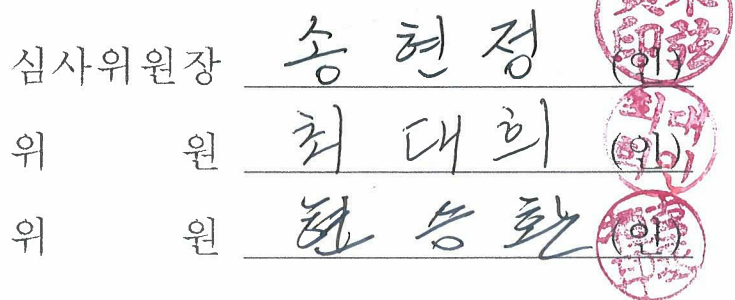 심사위원장 송현정 (인)
위 원 최대희 (인)
위 원 현승환 (인)